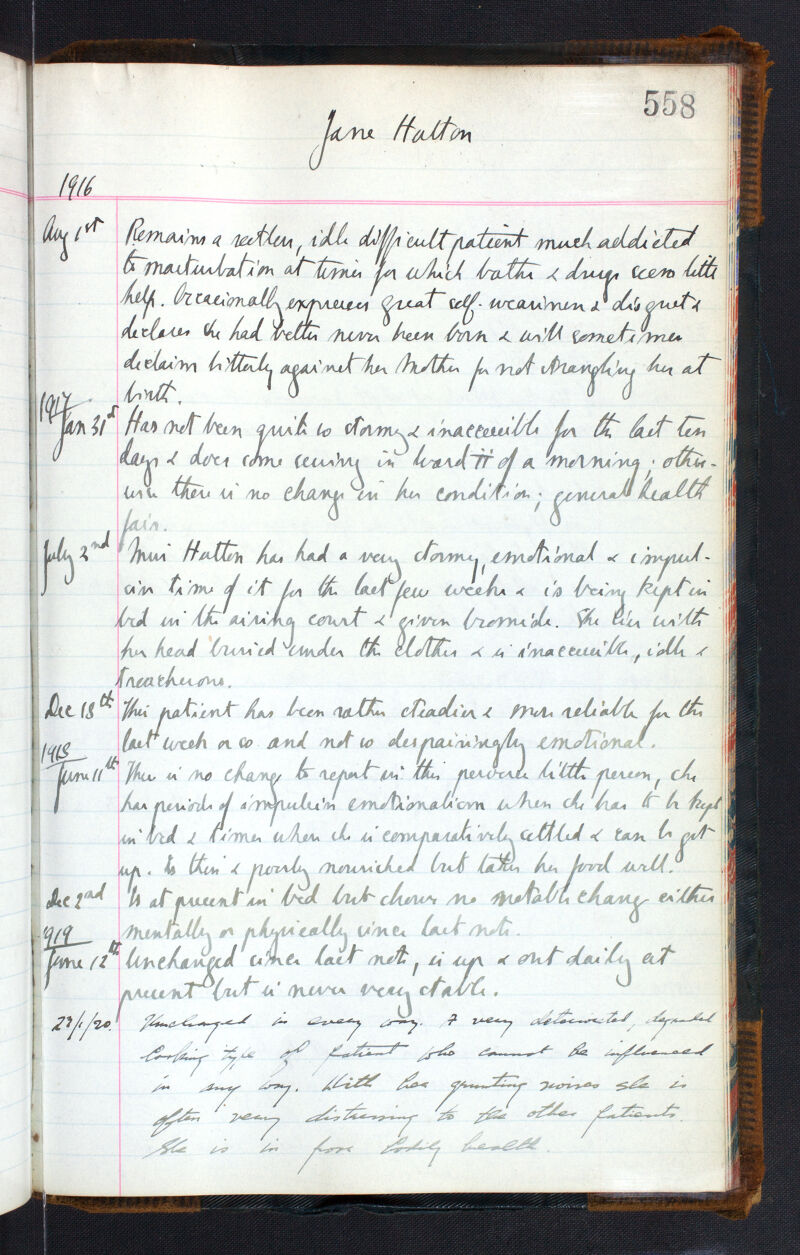 558
Jane Hatton
1916
Aug 1st Remains a restless, idle difficult patient much addicted
to masturbation at times for which baths & drugs seem little
help. Occasionally expresses great self-weariness & disgust &
declares she had better never been born & will sometimes
declaim bitterly against her Mother for not strangling her at
birth.
1917
Jan 31st Has not been quite so stormy & inaccessible for the last ten
days & does some sewing in Ward ii of a morning; other-
wise there is no change in her condition; general health
fair.
July 2nd Miss Hatton has had a very stormy, emotional & impul-
sive time of it for the last few weeks & is being kept in
bed in the airing court & given bromide. She lies with
her head buried under the clothes & is inaccessible, idle &
treacherous.
Dec 18th This patient has been rather steadier & more reliable for the
last week or so and not so despairingly emotional.
1918
June 11th There is no change to report in this perverse little person, she
has periods of impulsive emotionalism when she has to be kept
in bed & times when she is comparatively settled & can be got
up. Is thin & poorly nourished but takes her food well.
Dec 2nd Is at present in bed but shows no notable change either
mentally or physically since last note.
1919
June 12th Unchanged since last note, is up & out daily at
present but is never very stable.
23/1/20. Unchanged in every way. A very deteriorated, degraded
looking type of patient who cannot be influenced
in any way. With her grunting noises she is
often very distressing to the other patients.
She is in poor bodily health.